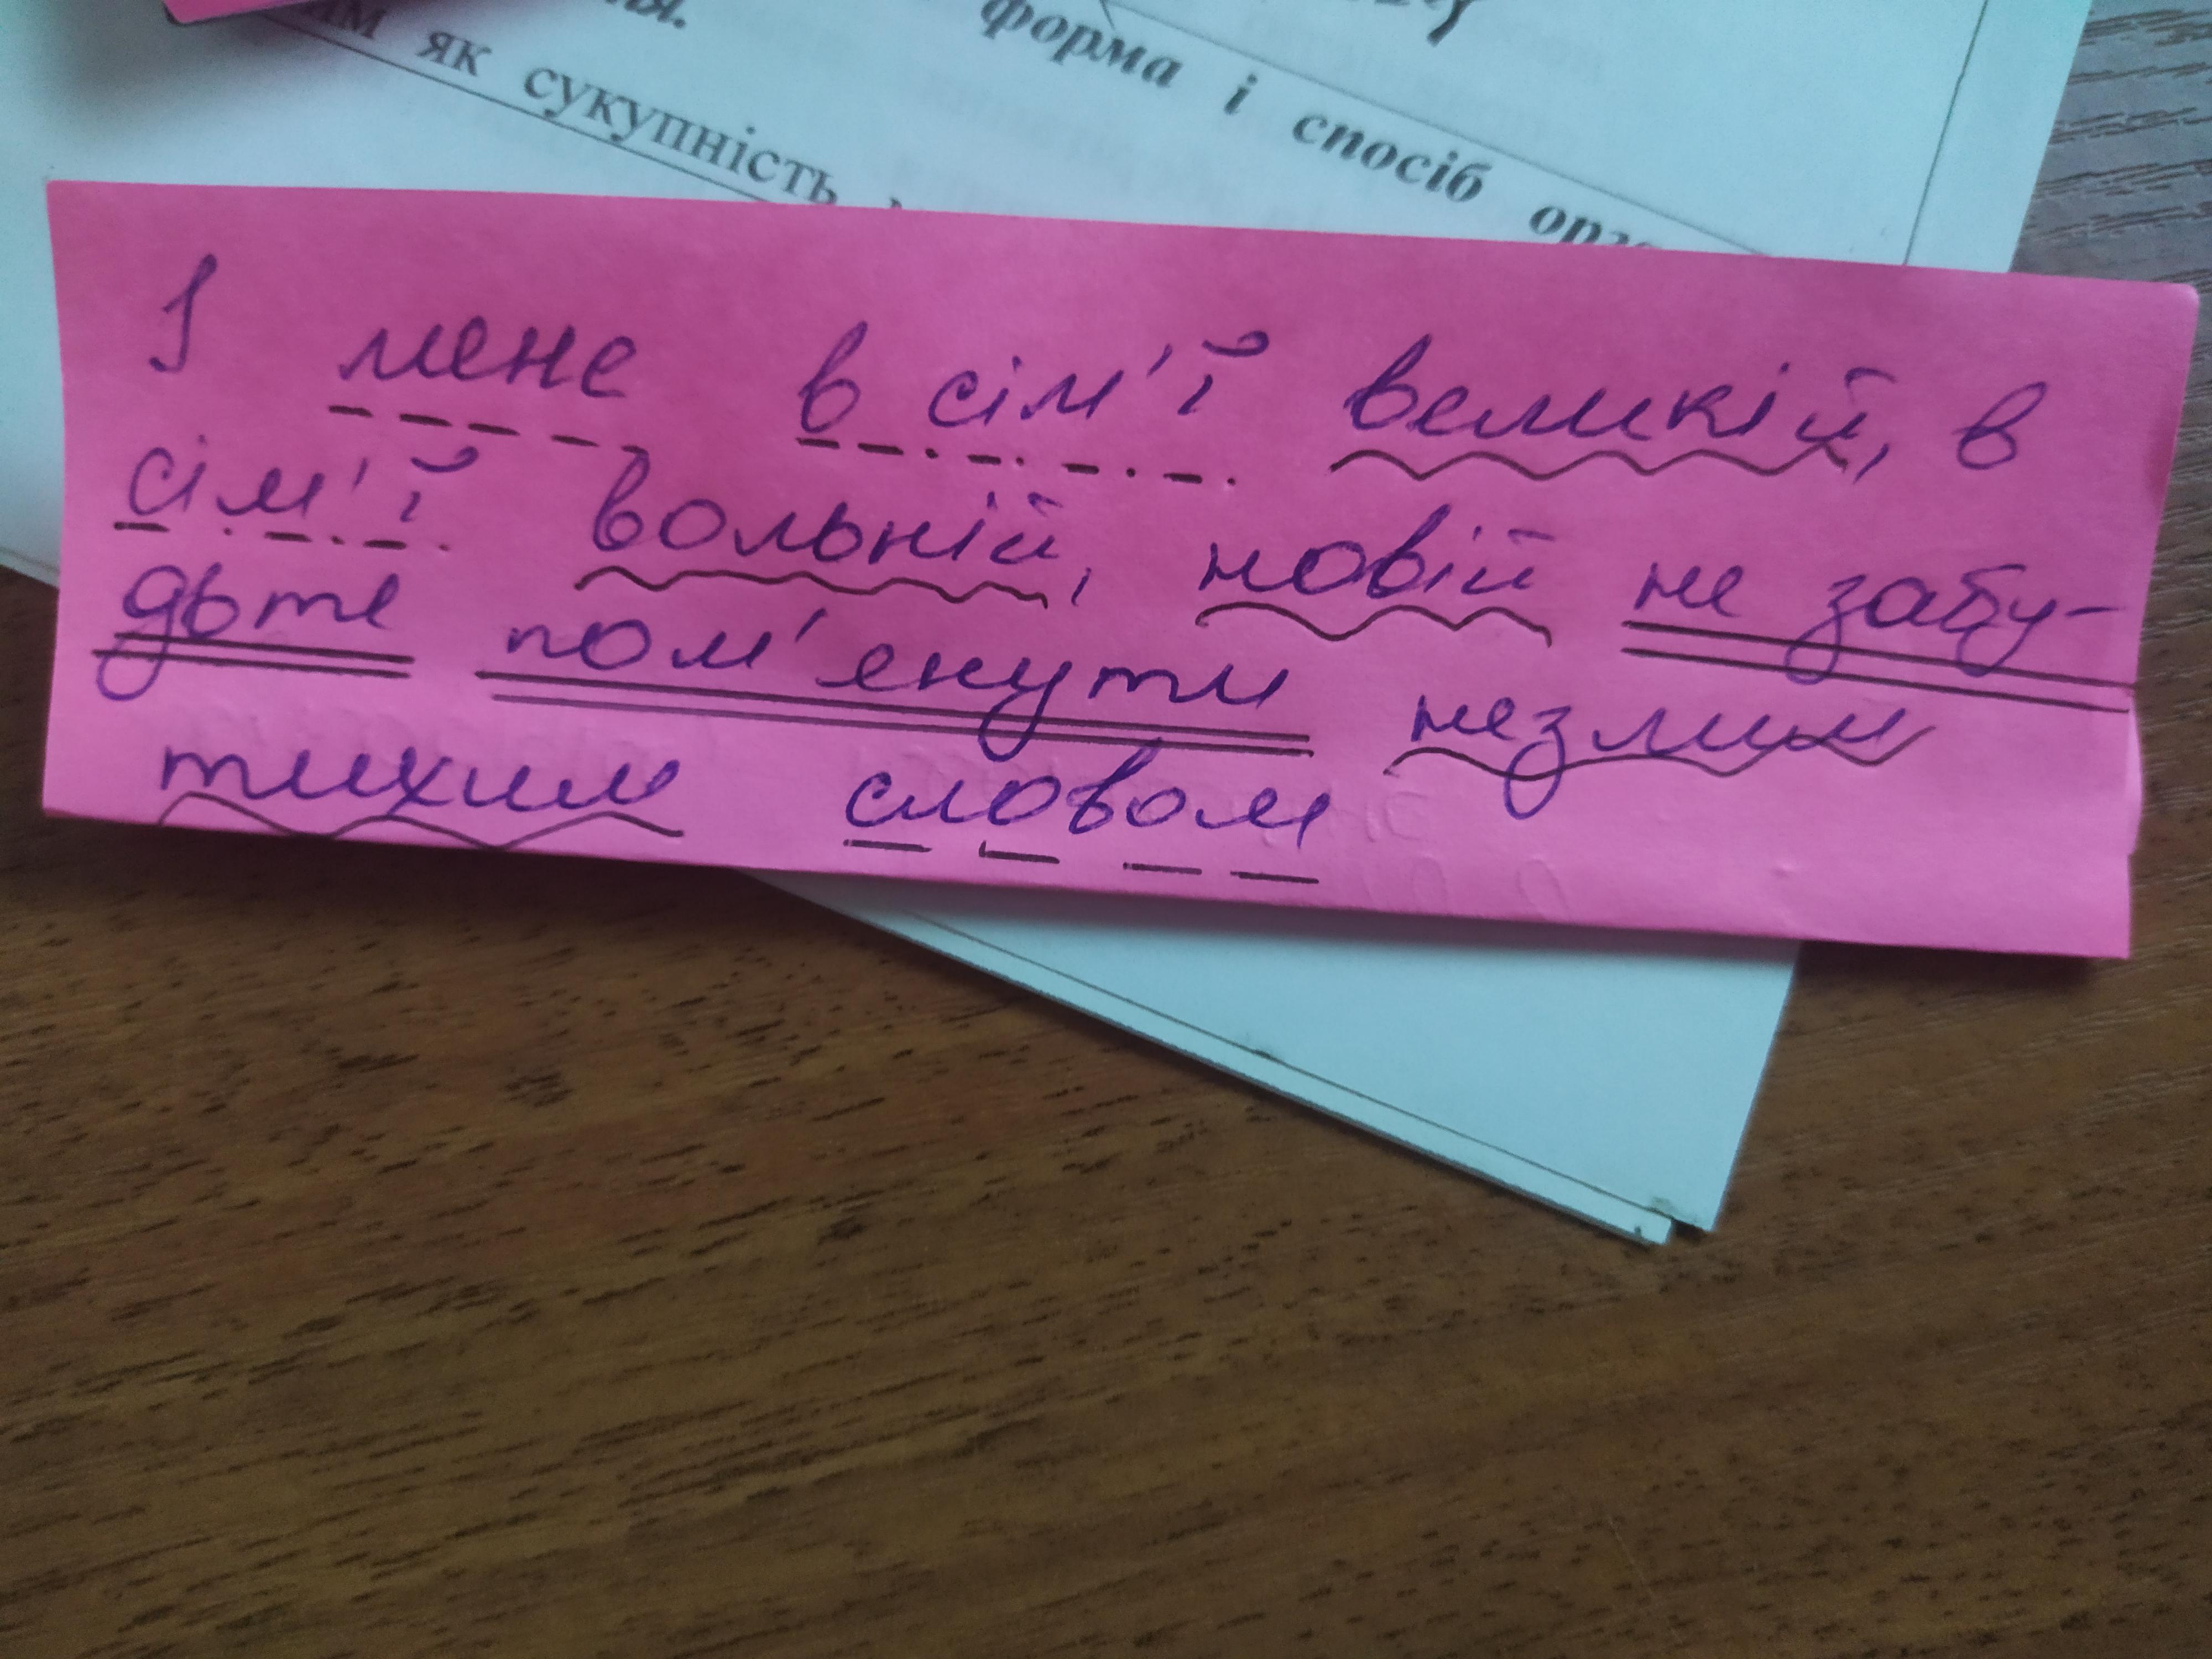 як сукупність
форма і спосіб
І мене в сім'ї великій, в
сім'ї вольній, новій не забу-
дьте пом'янути незлим
тихим словом